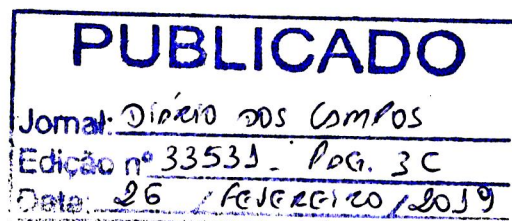 PUBLICADO
Jornal: DIÁRIO DOS CAMPOS
Edição nº 33531 - PAG. 3C
Data: 26 / FEVEREIRO / 2019